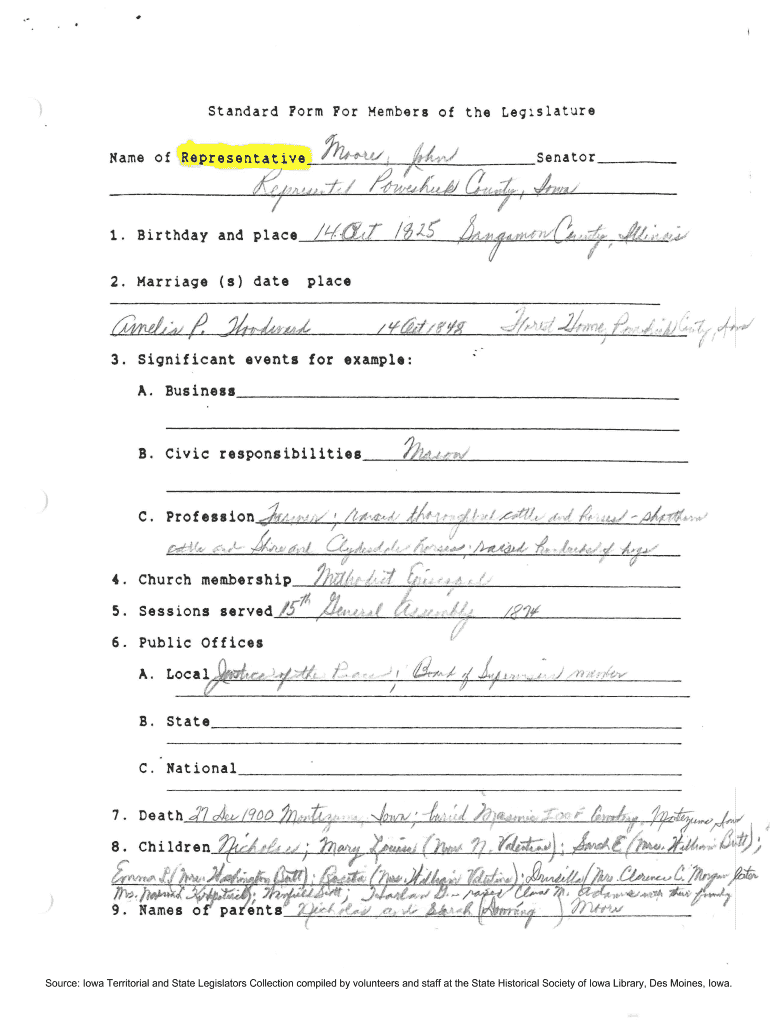 Standard Form For Members of the Legislature
Name of Representative Moore, John Senator
Represented Poweshiek County, Iowa
1. Birthday and place 14 Oct 1825 Sangamon County, Illinois
2. Marriage (s) date place
Amelia P. Woodward 14 Oct 1848 Forest Home, Poweshiek County, Iowa
3. Significant events for example:
A. Business
B. Civic responsibilities Mason
C. Profession Farmer; raised thoroughbred cattle and horses - shorthorn
cattle and Shire and Clydesdale horses; raised hundreds of hogs
4. Church membership Methodist Episcopal
5. Sessions served 15th General Assembly 1874
6. Public Offices
A. Local Justice of the Peace; Board of Supervisors member
B. State
C. National
7. Death 27 Dec 1900 Montezuma, Iowa; buried Masonic IOOF Cemetery, Montezuma, Iowa
8. Children Nicholas; Mary Louisa (Mrs. N. Valentine); Sarah E. (Mrs. William Butt);
Emma L. (Mrs. Washington Butt); (Mrs. William Valentine); Druscilla (Mrs. Clarence C. Morgan foster
Mrs. Kirkpatrick); Winfield Scott; Harlan G. - raised Clara M. Adams with their family
9. Names of parents Nicholas and Sarah ( ) Moore
Source: Iowa Territorial and State Legislators Collection compiled by volunteers and staff at the State Historical Society of Iowa Library, Des Moines, Iowa.